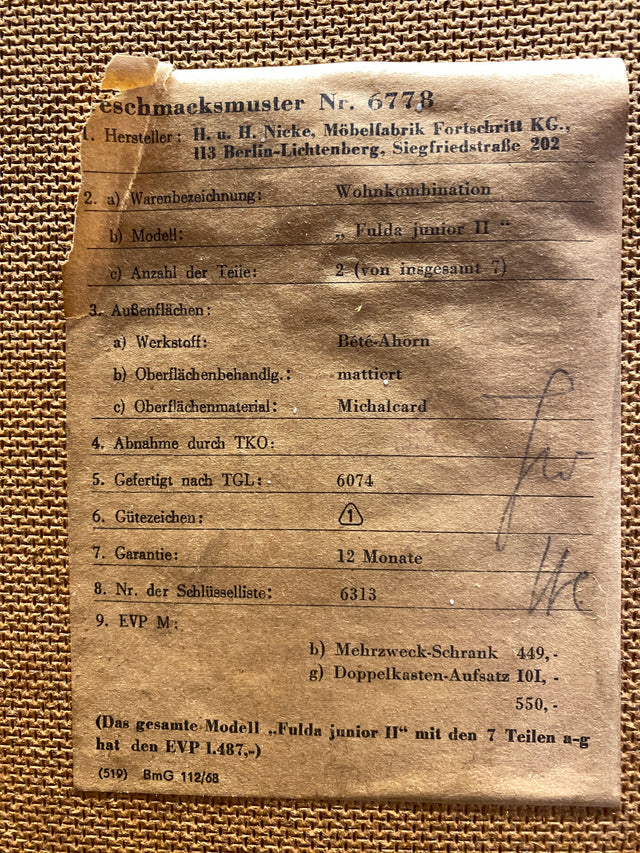 eschmacksmuster Nr. 6778
1. Hersteller: H. u. H. Nicke, Möbelfabrik Fortschritt KG.,
113 Berlin-Lichtenberg, Siegfriedstraße 202
2. a) Warenbezeichnung: Wohnkombination
b) Modell: „Fulda junior II“
c) Anzahl der Teile: 2 (von insgesamt 7)
3. Außenflächen:
a) Werkstoff: Bété-Ahorn
b) Oberflächenbehandlg.: mattiert
c) Oberflächenmaterial: Michalcard
4. Abnahme durch TKO:
5. Gefertigt nach TGL: 6074
6. Gütezeichen: 1
7. Garantie: 12 Monate
8. Nr. der Schlüsselliste: 6313
9. EVP M:
b) Mehrzweck-Schrank 449,-
g) Doppelkasten-Aufsatz 101,-
550,-
(Das gesamte Modell „Fulda junior II“ mit den 7 Teilen a-g
hat den EVP 1.487,-)
(519) BmG 112/68